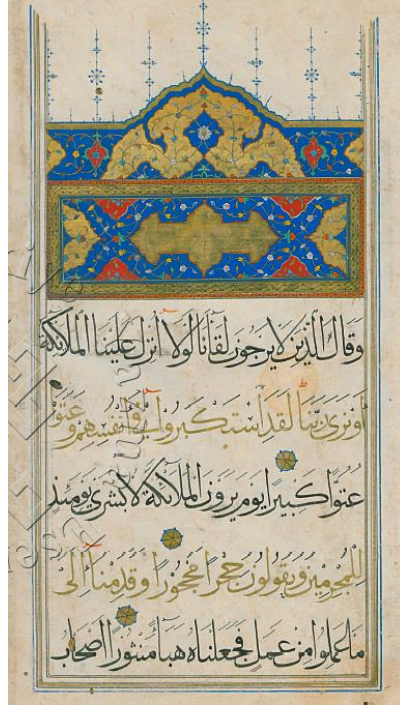 وَقَالَ الَّذِينَ لَا يَرْجُونَ لِقَآءَنَا لَوْلَا أُنْزِلَ عَلَيْنَا الْمَلَائِكَةُ
أَوْ نَرَىٰ رَبَّنَا لَقَدِ اسْتَكْبَرُوا فِي أَنْفُسِهِمْ وَعَتَوْ
عُتُوًّا كَبِيرًا يَوْمَ يَرَوْنَ الْمَلَائِكَةَ لَا بُشْرَىٰ يَوْمَئِذٍ
لِلْمُجْرِمِينَ وَيَقُولُونَ حِجْرًا مَحْجُورًا وَقَدِمْنَآ إِلَىٰ
مَا عَمِلُوا مِنْ عَمَلٍ فَجَعَلْنَاهُ هَبَآءً مَنْثُورًا أَصْحَابُ